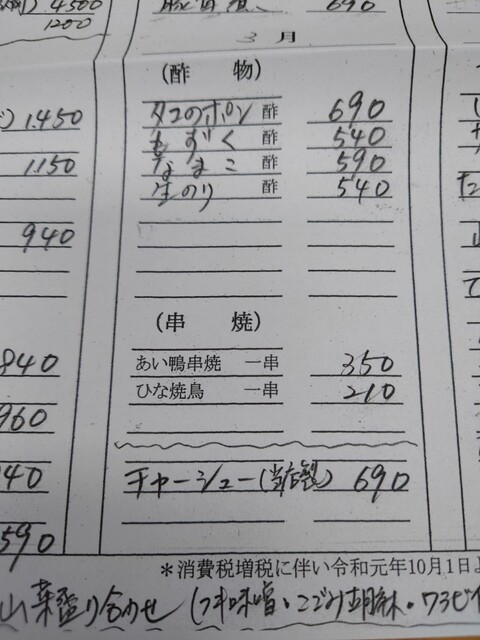 4500
1200
690
3月
(酢 物)
タコのポン酢 690
もずく酢 540
なまこ酢 590
生のり酢 540
1.450
1150
940
(串 焼)
あい鴨串焼 一串 350
ひな焼鳥 一串 210
チャーシュー(当店製) 690
840
960
40
590
*消費税増税に伴い令和元年10月1日よ
山菜盛り合わせ (フキ味噌・こごみ胡麻・ワラビ